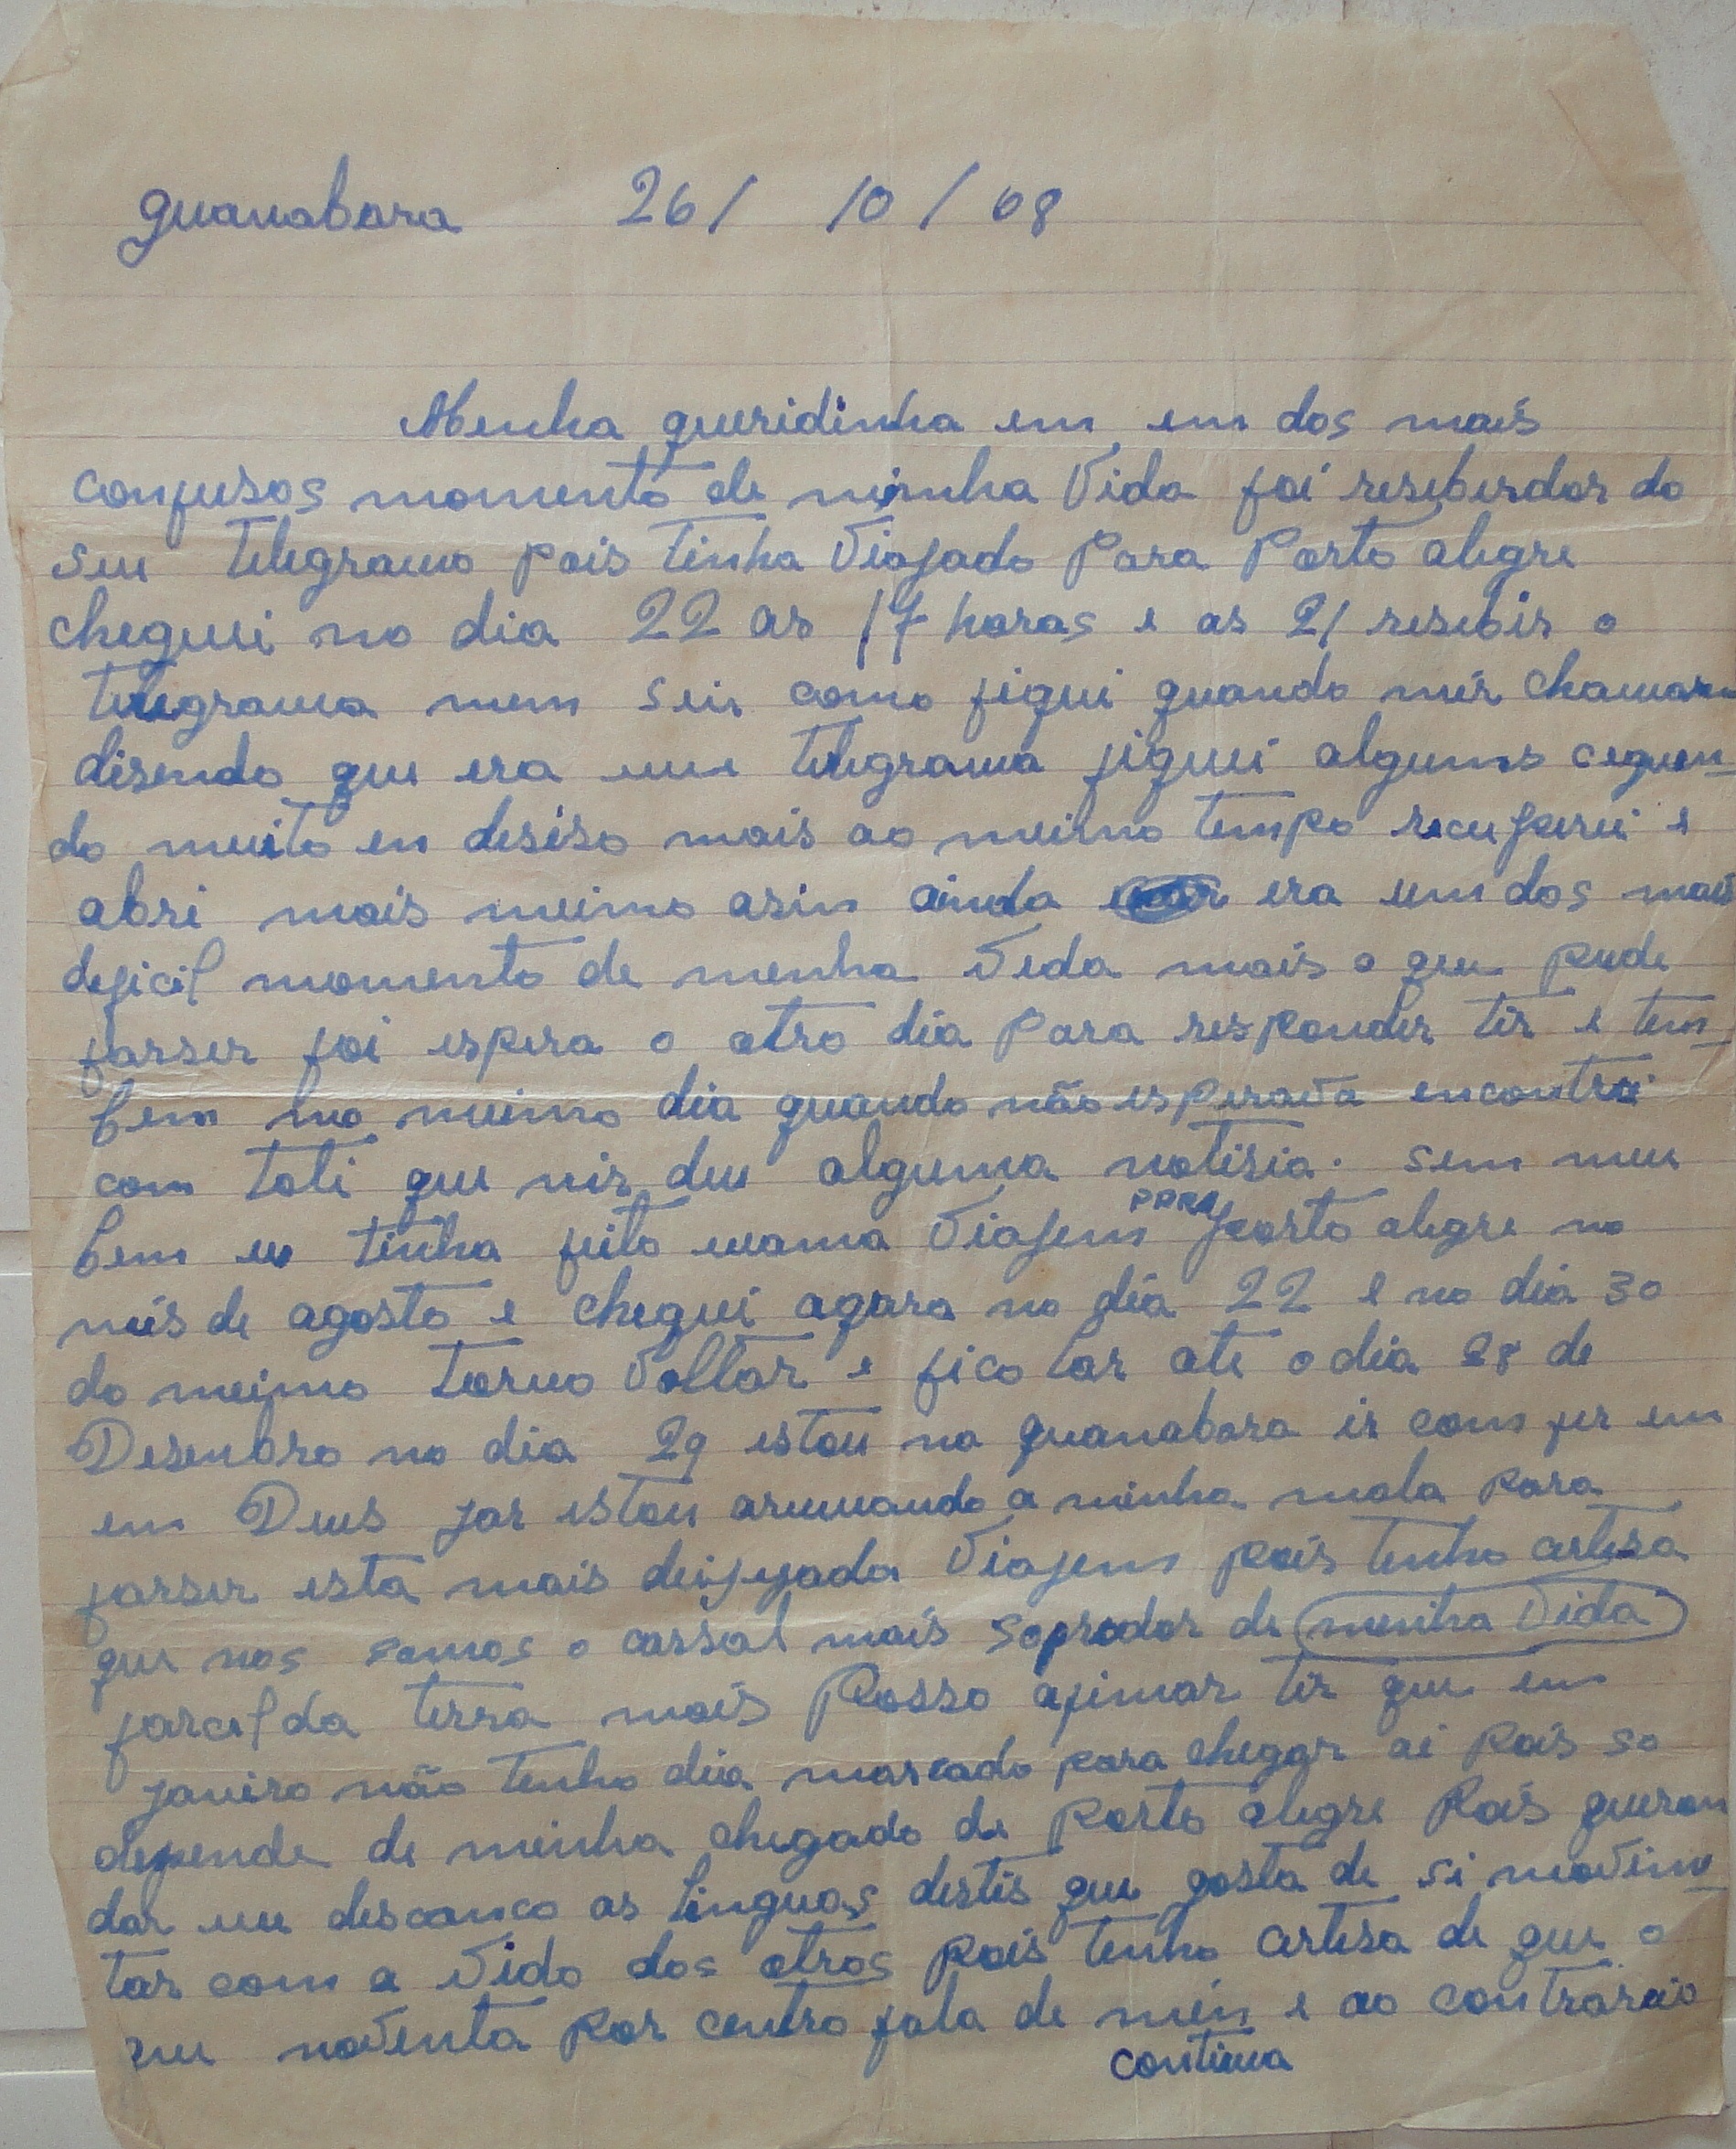 guanabara 26/ 10 / 68
Menha queridinha em em dos mais
confusos momento de minha Vida foi reseberdor do
seu telegrama pois tinha Viajado Para Porto alegre
cheguei no dia 22 as 17 horas e as 21 resebir o
telegrama nem seir como fiqui quando mir chamaram
disendo que era um telegrama fiquei alguns cegun_
do muito en desiso mais ao meimo tempo recuperei e
abri mais meimo asin ainda era um dos mais
deficil momento de menha Veda mais o que pude
farser foi espera o otro dia Para responder tir e tem_
bem no meimo dia quando não esperava encontrei
com toti que mir deu alguma notisia. sem meu
bem eu tinha feito uama Viajem PARA Porto alegre no
mês de agosto e chegui agora no dia 22 e no dia 30
do meimo torno Voltar e fico lar ate o dia 28 de
Desembro no dia 29 estou na guanabara ir com fer em
em Deus jar estou arumando a minha mala para
farser esta mais deisejada Viajem pois tenho certesa
que nos somos o carsal mais soprador de menha Vida
farcel da terra mais Posso afimar tir que em
janeiro não tenho dia marcado para chegar ai pois so
depende de minha chegada de Porto alegre Pois queron
dar um descanco as linguas destis que gosta de si movim_
tar com a vida dos otros pois tenho certesa de que o
noventa por centro fala de mim e ao contrario
continua